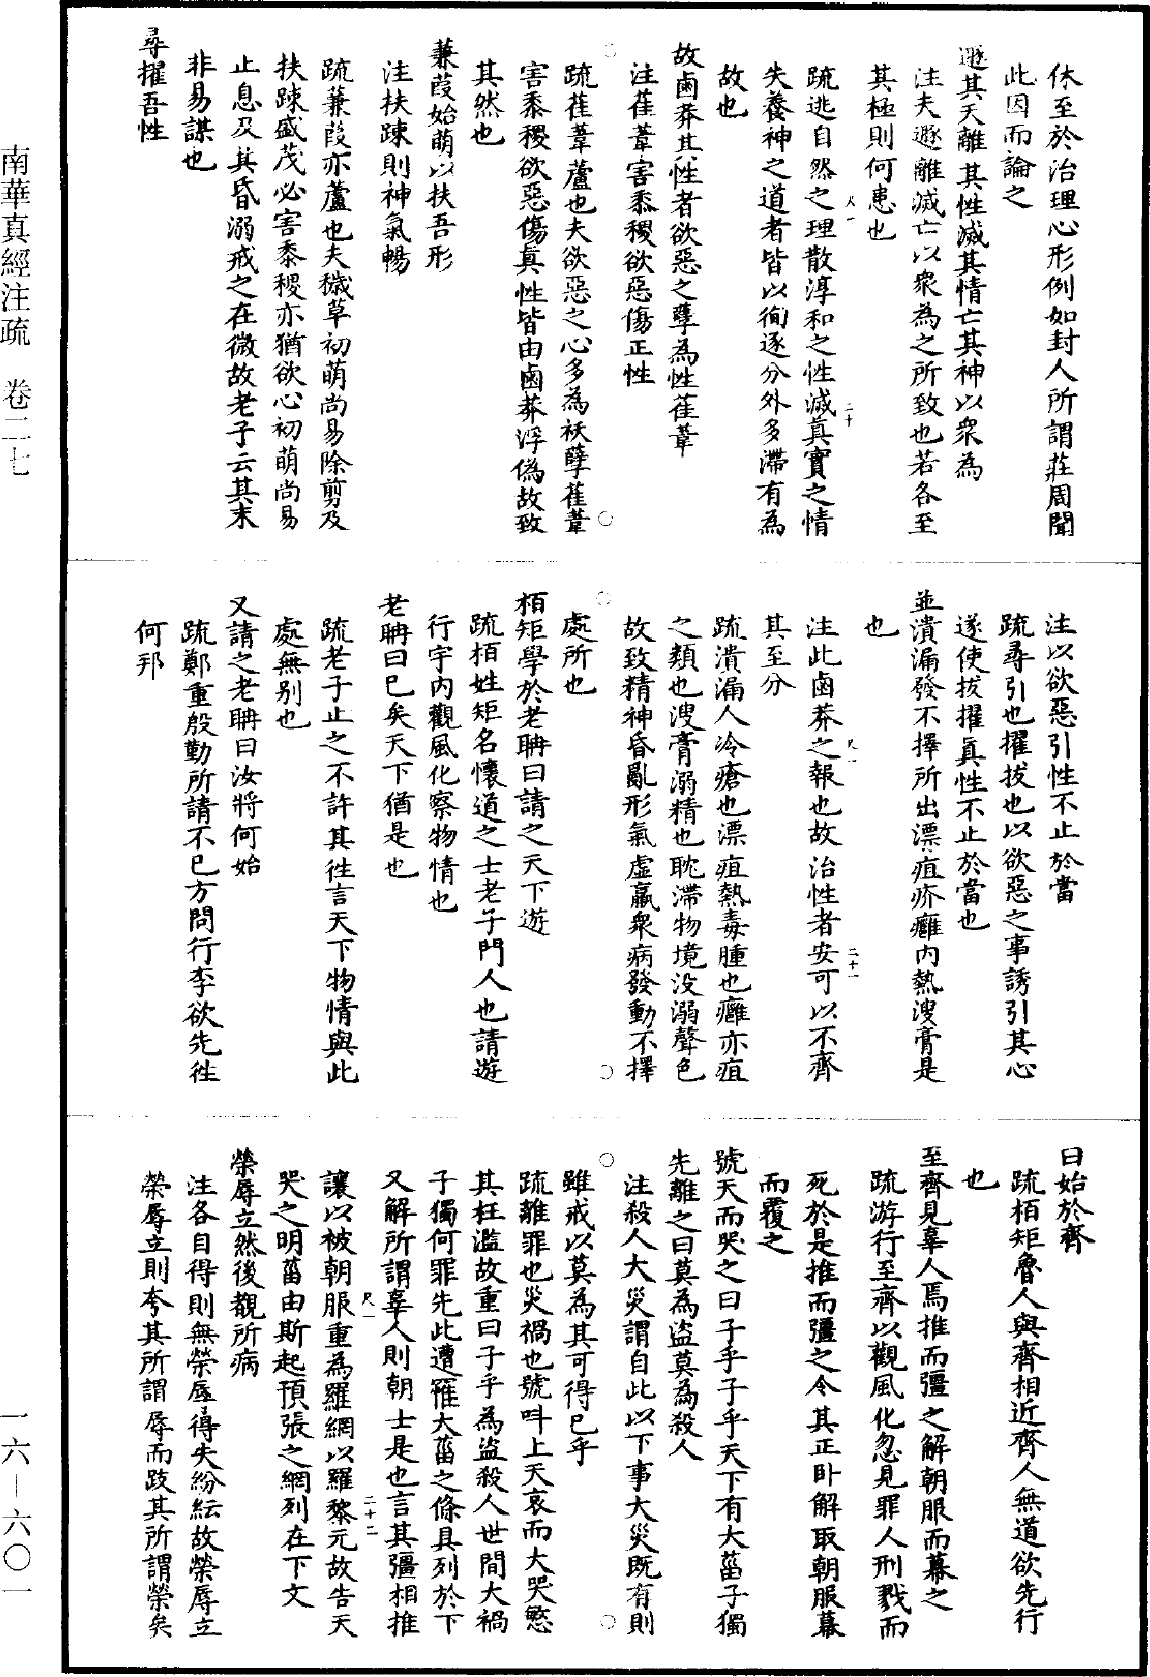 休至於治理心形例如封人所謂莊周聞
此因而論之
遯其天離其性滅其情亡其神以衆為
注夫遯離滅亡以衆為之所致也若各至
其極則何患也
疏逃自然之理散淳和之性滅真實之情
失養神之道者皆以徇逐分外多滯有為
故也
故鹵莽其性者欲惡之孽為性萑葦
注萑葦害黍稷欲惡傷正性
疏萑葦蘆也夫欲惡之心多為祅孽萑葦
害黍稷欲惡傷真性皆由鹵莽浮偽故致
其然也
蒹葭始萌以扶吾形
注扶踈則神氣暢
疏蒹葭亦蘆也夫穢草初萌尚易除剪及
扶踈盛茂必害黍稷亦猶欲心初萌尚易
止息及其昏溺戒之在微故老子云其未
非易謀也
尋擢吾性
注以欲惡引性不止於當
疏尋引也擢拔也以欲惡之事誘引其心
遂使拔擢真性不止於當也
並潰漏發不擇所出漂疽疥癰內熱溲膏是
也
注此鹵莽之報也故治性者安可以不齊
其至分
疏潰漏人冷瘡也漂疽熱毒腫也癰亦疽
之類也溲膏溺精也耽滯物境没溺聲色
故致精神昏亂形氣虛羸衆病發動不擇
處所也
栢矩學於老聃曰請之天下遊
疏栢姓矩名懷道之士老子門人也請遊
行宇內觀風化察物情也
老聃曰已矣天下猶是也
疏老子止之不許其徃言天下物情與此
處無别也
又請之老聃曰汝將何始
疏鄭重殷勤所請不已方問行李欲先徃
何邦
曰始於齊
疏栢矩魯人與齊相近齊人無道欲先行
也
至齊見辜人焉推而彊之解朝服而幕之
疏游行至齊以觀風化忽見罪人刑戮而
死於是推而彊之令其正卧解取朝服幕
而覆之
號天而哭之曰子乎子乎天下有大菑子獨
先離之曰莫為盜莫為殺人
注殺人大災謂自此以下事大災既有則
雖戒以莫為其可得已乎
疏離罹也災禍也號呌上天哀而大哭慜
其枉濫故重曰子乎為盜殺人世間大禍
子獨何罪先此遭罹大菑之條具列於下
又解所謂辜人則朝士是也言其彊相推
讓以被朝服重為羅網以羅黎元故告天
哭之明菑由斯起預張之網列在下文
榮辱立然後覩所病
注各自得則無榮辱得失紛紜故榮辱立
榮辱立則夸其所謂辱而跂其所謂榮矣
南華真經注疏　卷二七
一六—六〇一
尺一
二十
尺一
二十一
尺一
二十二